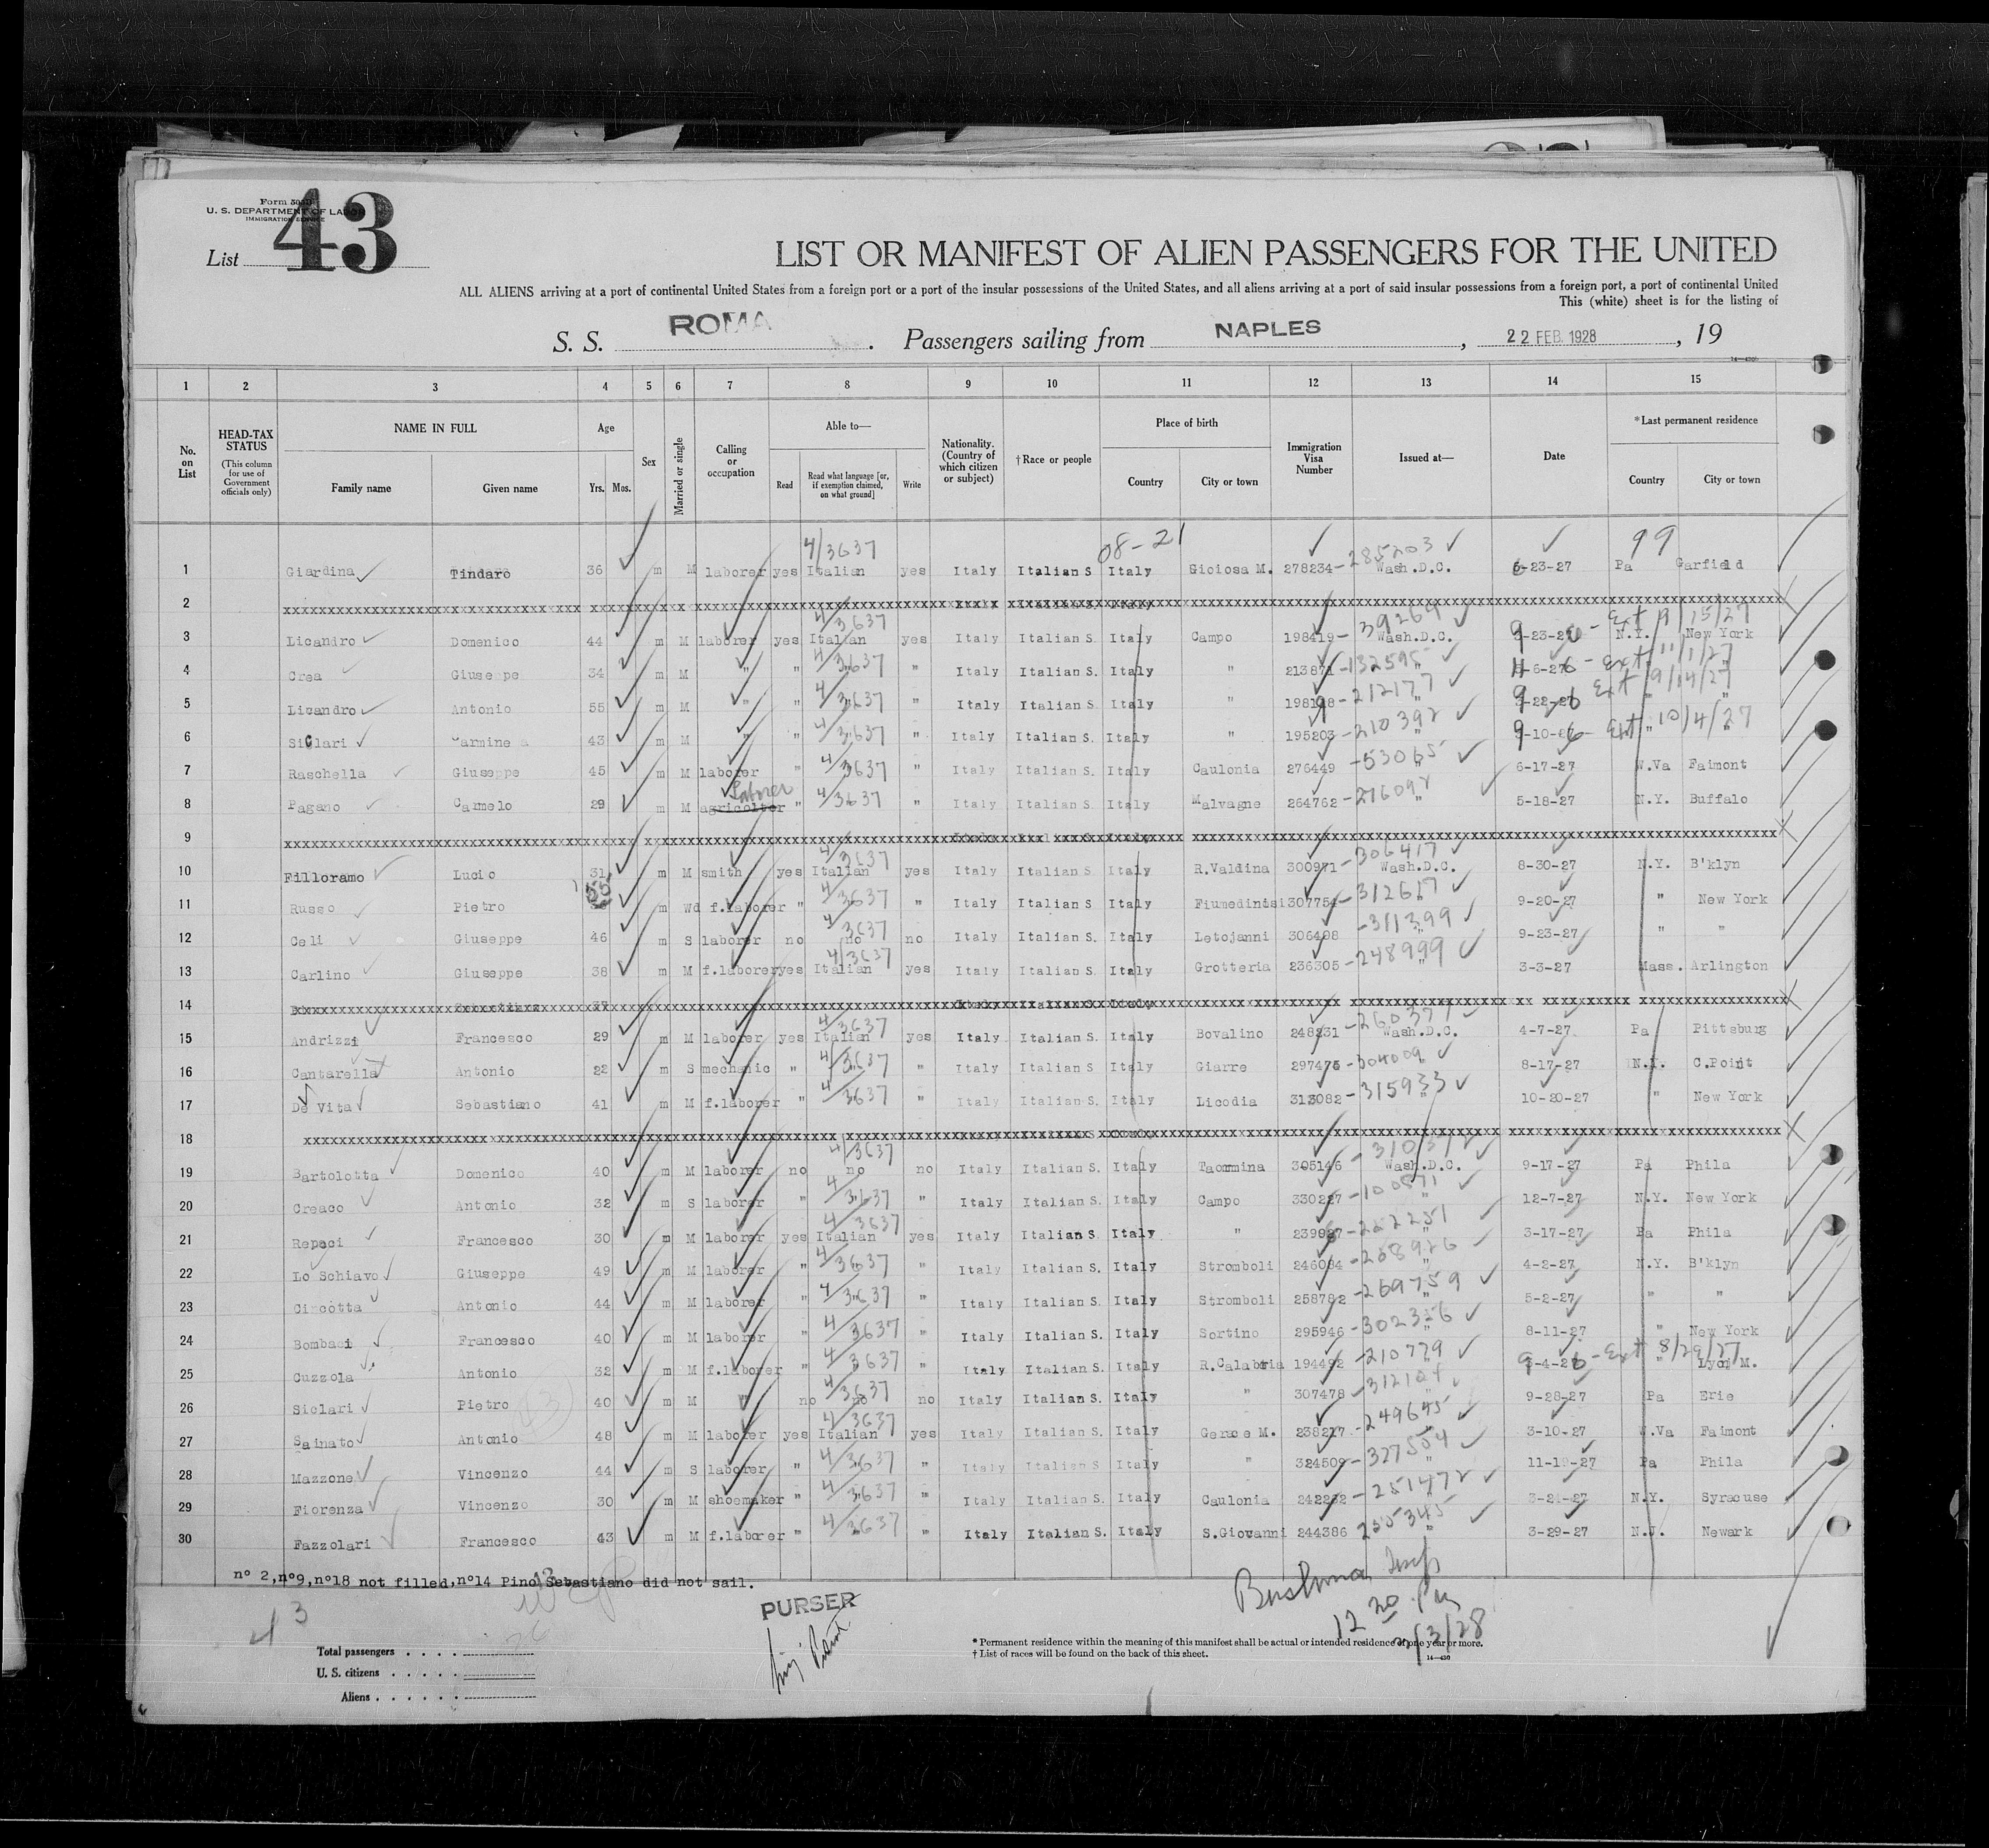 Form 500
U. S. DEPARTMENT OF LABOR
IMMIGRATION SERVICE
List 43
LIST OR MANIFEST OF ALIEN PASSENGERS FOR THE UNITED
ALL ALIENS arriving at a port of continental United States from a foreign port or a port of the insular possessions of the United States, and all aliens arriving at a port of said insular possessions from a foreign port, a port of continental United
This (white) sheet is for the listing of
S. S. ROMA. Passengers sailing from NAPLES, 22 FEB. 1928, 19
1 2 3 4 5 6 7 8 9 10 11 12 13 14 15
No. on List
HEAD-TAX STATUS (This column for use of Government officials only)
NAME IN FULL Family name Given name
Age Yrs. Mos.
Sex
Married or single
Calling or occupation
Able to— Read Read what language [or, if exemption claimed, on what ground] Write
Nationality. (Country of which citizen or subject)
†Race or people
Place of birth Country City or town
Immigration Visa Number
Issued at—
Date
*Last permanent residence Country City or town
4/3637 08-21 285203 99
1 Giardina Tindaro 36 m M laborer yes Italian yes Italy Italian S Italy Gioiosa M. 278234- Wash.D.C. 6-23-27 Pa Garfield
2 xxxxxxxxxxxxxxxxxxxxxxxxxxxxxx
4/3637 39269 Ext 9/15/27
3 Licandro Domenico 44 m M laborer yes Italian yes Italy Italian S. Italy Campo 198419- Wash.D.C. 9-23-26 N.Y. New York
4 Crea Giuseppe 34 m M " " 4/3637 " Italy Italian S. Italy " 213871-132595 " 11-6-26 - Ext 11/1/27 " "
5 Licandro Antonio 55 m M " " 4/3637 " Italy Italian S. Italy " 198198-212177 " 9-22-26 Ext 9/14/27 " "
6 Siclari Carmine 43 m M " " 4/3637 " Italy Italian S. Italy " 195203-210392 " 9-10-26- Ext 10/4/27 " "
7 Raschella Giuseppe 45 m M laborer " 4/3637 " Italy Italian S. Italy Caulonia 276449 -53065 " 6-17-27 W.Va Faimont
8 Pagano Carmelo 29 m M agricolter Laborer " 4/3637 " Italy Italian S. Italy Malvagne 264762-276097 " 5-18-27 N.Y. Buffalo
9 xxxxxxxxxxxxxxxxxxxxxxxxxxxxxx
4/3637 306417
10 Filloramo Lucio 31 m M smith yes Italian yes Italy Italian S Italy R.Valdina 300971- Wash.D.C. 8-30-27 N.Y. B'klyn
11 Russo Pietro 55 m Wd f.laborer " 4/3637 " Italy Italian S Italy Fiumedinisi 307754-312617 " 9-20-27 " New York
12 Celi Giuseppe 46 m S laborer no no 4/3637 no Italy Italian S. Italy Letojanni 306408 -311399 " 9-23-27 " "
13 Carlino Giuseppe 38 m M f.laborer yes Italian 4/3637 yes Italy Italian S. Italy Grotteria 236305-248999 " 3-3-27 Mass. Arlington
14 xxxxxxxxxxxxxxxxxxxxxxxxxxxxxx
4/3637 260377
15 Andrizzi Francesco 29 m M laborer yes Italian yes Italy Italian S. Italy Bovalino 248231- Wash.D.C. 4-7-27 Pa Pittsburg
16 Cantarella Antonio 22 m S mechanic " 4/3637 " Italy Italian S Italy Giarre 297475-304009 " 8-17-27 N.Y. C.Point
17 De Vita Sebastiano 41 m M f.laborer " 4/3637 " Italy Italian S. Italy Licodia 313082-315933 " 10-20-27 " New York
18 xxxxxxxxxxxxxxxxxxxxxxxxxxxxxx
4/3637
19 Bartolotta Domenico 40 m M laborer no no no Italy Italian S. Italy Taormina 305146- Wash.D.C. 9-17-27 Pa Phila
20 Creaco Antonio 32 m S laborer " 4/3637 " Italy Italian S. Italy Campo 330227-100571 " 12-7-27 N.Y. New York
21 Repaci Francesco 30 m M laborer yes Italian 4/3637 yes Italy Italian S. Italy " 239987-252251 " 3-17-27 Pa Phila
22 Lo Schiavo Giuseppe 49 m M laborer " 4/3637 " Italy Italian S. Italy Stromboli 246084-258926 " 4-2-27 N.Y. B'klyn
23 Cincotta Antonio 44 m M laborer " 4/3637 " Italy Italian S. Italy Stromboli 258782-269759 " 5-2-27 " "
24 Bombaci Francesco 40 m M laborer " 4/3637 " Italy Italian S. Italy Sortino 295946-302356 " 8-11-27 " New York
25 Cuzzola Antonio 32 m M f.laborer " 4/3637 " Italy Italian S. Italy R.Calabria 194492-210779 " 9-4-26-Ext 8/29/27 " Lyon M.
26 Siclari Pietro 40 m M " no no 4/3637 no Italy Italian S. Italy " 307478-312124 " 9-28-27 Pa Erie
27 Sainato Antonio 48 m M laborer yes Italian 4/3637 yes Italy Italian S. Italy Gerace M. 238217-249645 " 3-10-27 W.Va Faimont
28 Mazzone Vincenzo 44 m S laborer " 4/3637 " Italy Italian S Italy " 324509-327554 " 11-19-27 Pa Phila
29 Fiorenza Vincenzo 30 m M shoemaker " 4/3637 " Italy Italian S. Italy Caulonia 242232-251472 " 3-21-27 N.Y. Syracuse
30 Fazzolari Francesco 43 m M f.laborer " 4/3637 " Italy Italian S. Italy S.Giovanni 244386 255345 " 3-29-27 N.J. Newark
n° 2,n°9,n°18 not filled,n°14 Pino Sebastiano did not sail.
43
PURSER
12 20 PM
3/3/28
Total passengers . . . . 26
U. S. citizens . . . . .
Aliens . . . . . .
* Permanent residence within the meaning of this manifest shall be actual or intended residence of one year or more.
† List of races will be found on the back of this sheet.
14—430